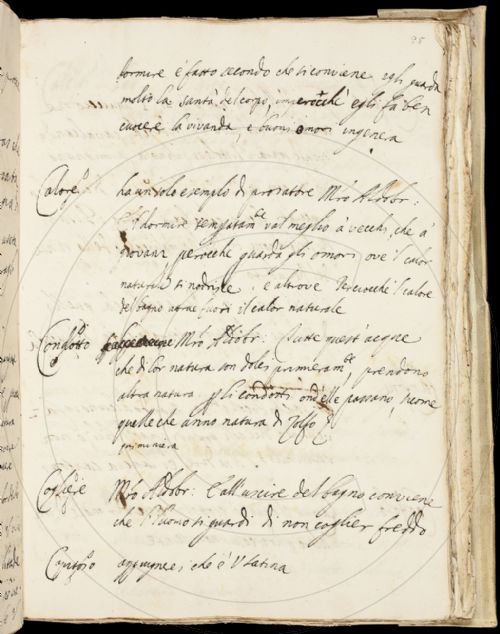 25
dormire è fatto secondo che si conviene egli guarda
molto la santà del corpo, imperocchè egli fa ben
cuocere la vivanda, e buoni omori ingenera
Calore
ha un solo esemplo di prosatore Mro Aldobr:
Il dormire temperatamte val meglio à vecchi, che a
giovani perocche guarda gli omori ove 'l calor
naturale si nodrisce. e altrove Perciocche 'l calore
del bagno attrae fuori il calor naturale
Condotto
Mro Aldobr: Tutte quest'acque
che di lor natura son dolci primeramte, prendono
altra natura gli condotti onde elle passano, siccome
quelle che anno natura di Zolfo
priminiera
Cogliere
Mro Aldobr: E all'uscire del bagno conviene
che l'uomo si guardi di non coglier freddo
aggiugnesi che è V. Latina